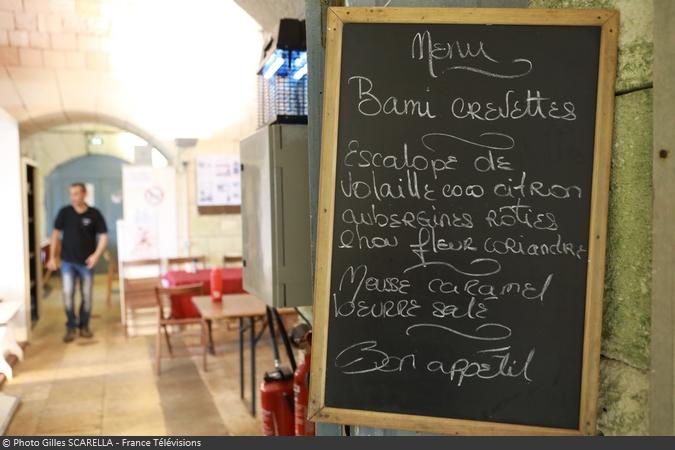 Menu
Bami crevettes
Escalope de
volaille coco citron
aubergines rôties
chou fleur coriandre
Mousse caramel
beurre salé
Bon appétit
© Photo Gilles SCARELLA - France Télévisions